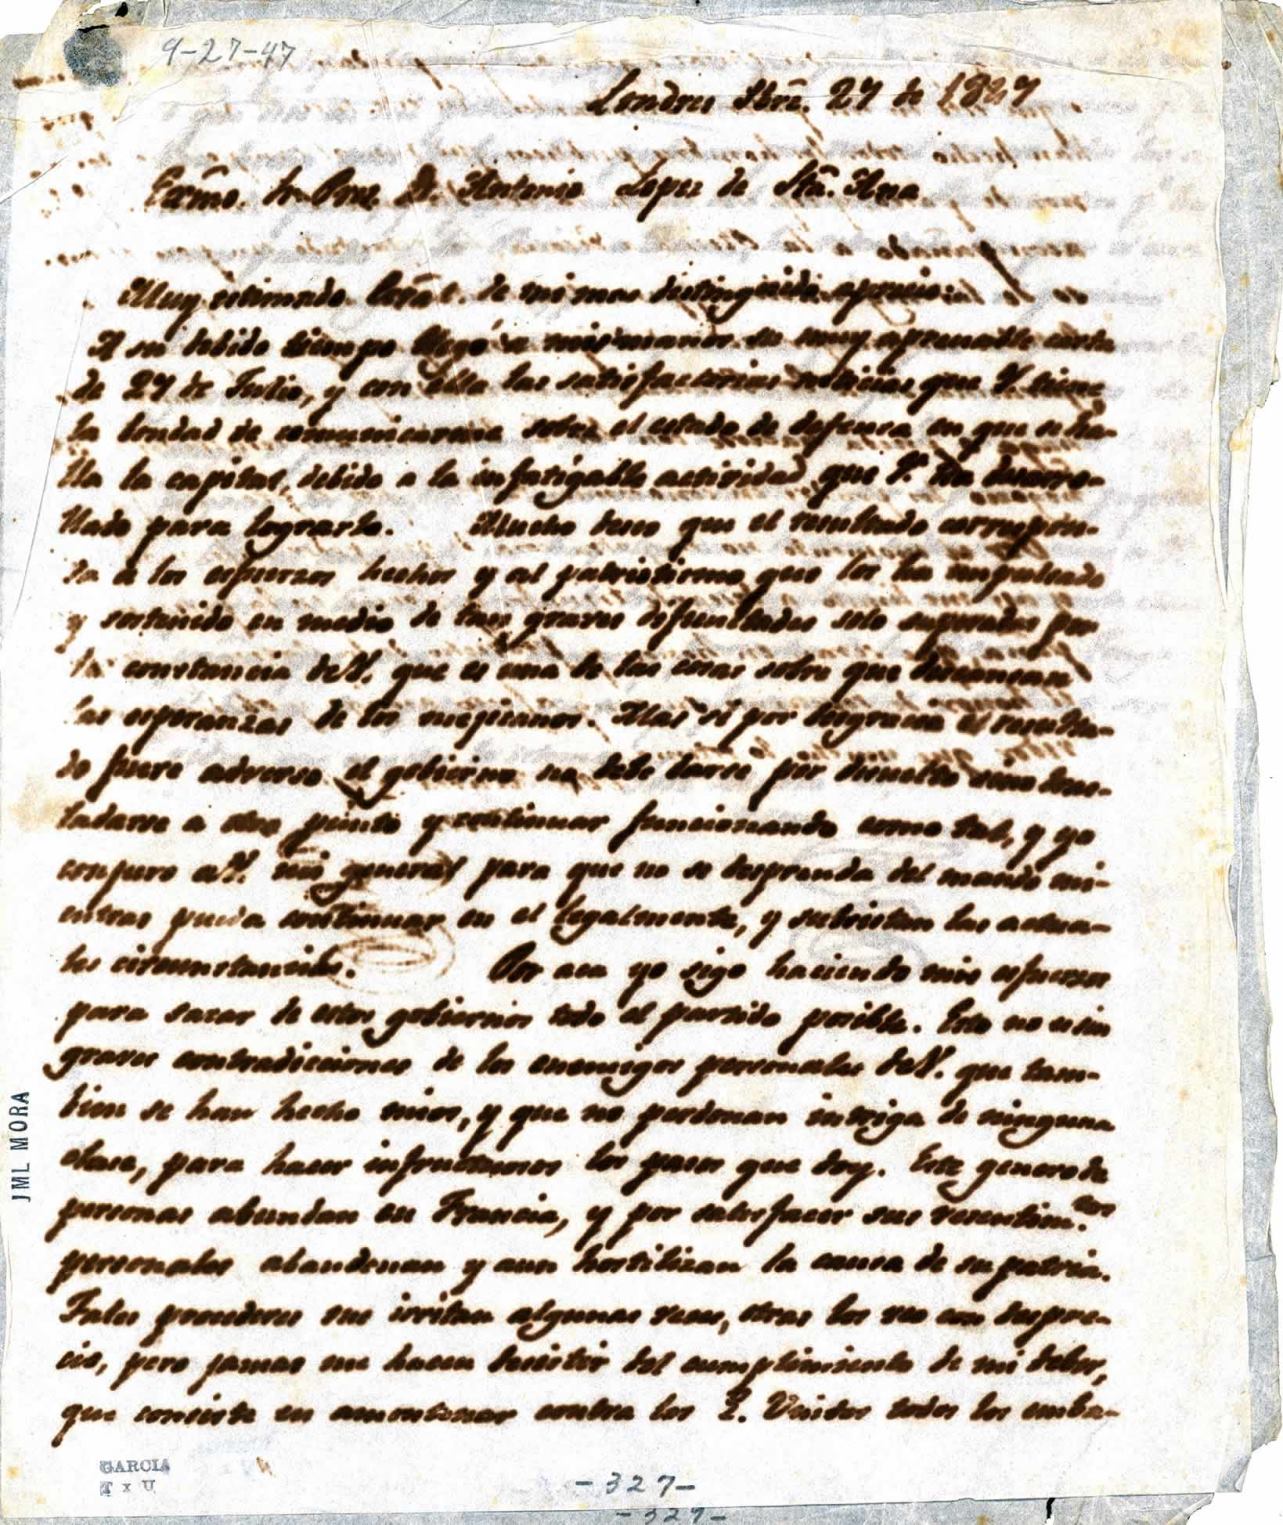 9-27-47
Londres Sbrẽ. 27 de 1847
Exm̃o. Sr. Prez. D. Antonio Lopez de Stã. Ana
Muy estimado Gerãl. de mi mas distinguido aprecio.
A su debido tiempo llegó a mis manos su muy apreciable carta
de 27 de Julio, y con ella las satisfactorias noticias que V. tiene
la bondad de comunicarme sobre el estado de defensa en que se ha-
lla la capital, debido a la infatigable actividad que V. ha desarro-
llado para lograrlo. Mucho deseo que el resultado correspon-
da a los esfuerzos hechos y al patriotismo que los ha impulsado
y sostenido en medio de tan graves dificultades solo superadas por
la constancia de V. que es una de las cosas sobre que descansan
las esperanzas de los mejicanos. Mas si por desgracia el resulta-
do fuere adverso el gobierno no debe darse por disuelto sino tras-
ladarse a otro punto y continuar funcionando como tal, y yo
conjuro a V. mi general para que no se desprenda del mando mi-
entras pueda continuar en el legalmente, y subsistan las actua-
les circunstancias. Por aca yo sigo haciendo mis esfuerzos
para sacar de estos gobiernos todo el partido posible. Esto no es sin
graves contradiciones de los enemigos personales de V. que tam-
bien se han hecho mios, y que no perdonan intriga de ninguna
clase, para hacer infructuosos los pasos que doy. Este genero de
personas abundan en Francia, y por satisfacer sus resentim.tos
personales abandonan y aun hostilizan la causa de su patria.
Tales procederes me irritan algunas veces, otras los veo con despre-
cio, pero jamas me hacen desistir del cumplimiento de mi deber,
que consiste en amontonar contra los E. Unidos todos los emba-
JML MORA
GARCIA
T x U
-327-
-327-